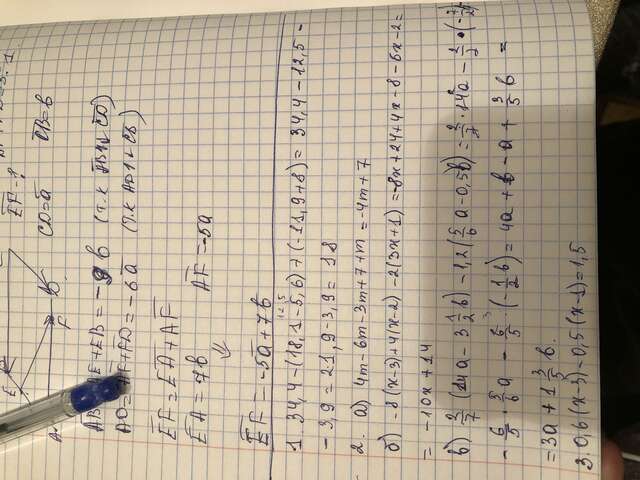 EF - ?
CD = a CB = b
AB = AE + EB = -9b (т.к AB⊥CD)
AD = AF + FD = -6a (т.к AD⊥CB)
EF = EA + AF
EA = 7b AF = -5a
EF = -5a + 7b
1. 34,4 - (18,1 - 5,6) + (-11,9 + 8) = 34,4 - 12,5 -
- 3,9 = 21,9 - 3,9 = 18
2. а) 4m - 6m - 3m + 7 + m = -4m + 7
б) -8(x-3) + 4(x-2) - 2(3x+1) = -8x + 24 + 4x - 8 - 6x - 2 =
= -10x + 14
в) 2/7 (14a - 3 1/2 b) - 1,2 (5/6 a - 0,5b) = 2/7 · 14a - 2/7 · (-7/2)
- 6/5 · 5/6 a - 6/5 · (-1/2 b) = 4a + b - a + 3/5 b =
= 3a + 1 3/5 b.
3. 0,6(x-3) - 0,5(x-1) = 1,5